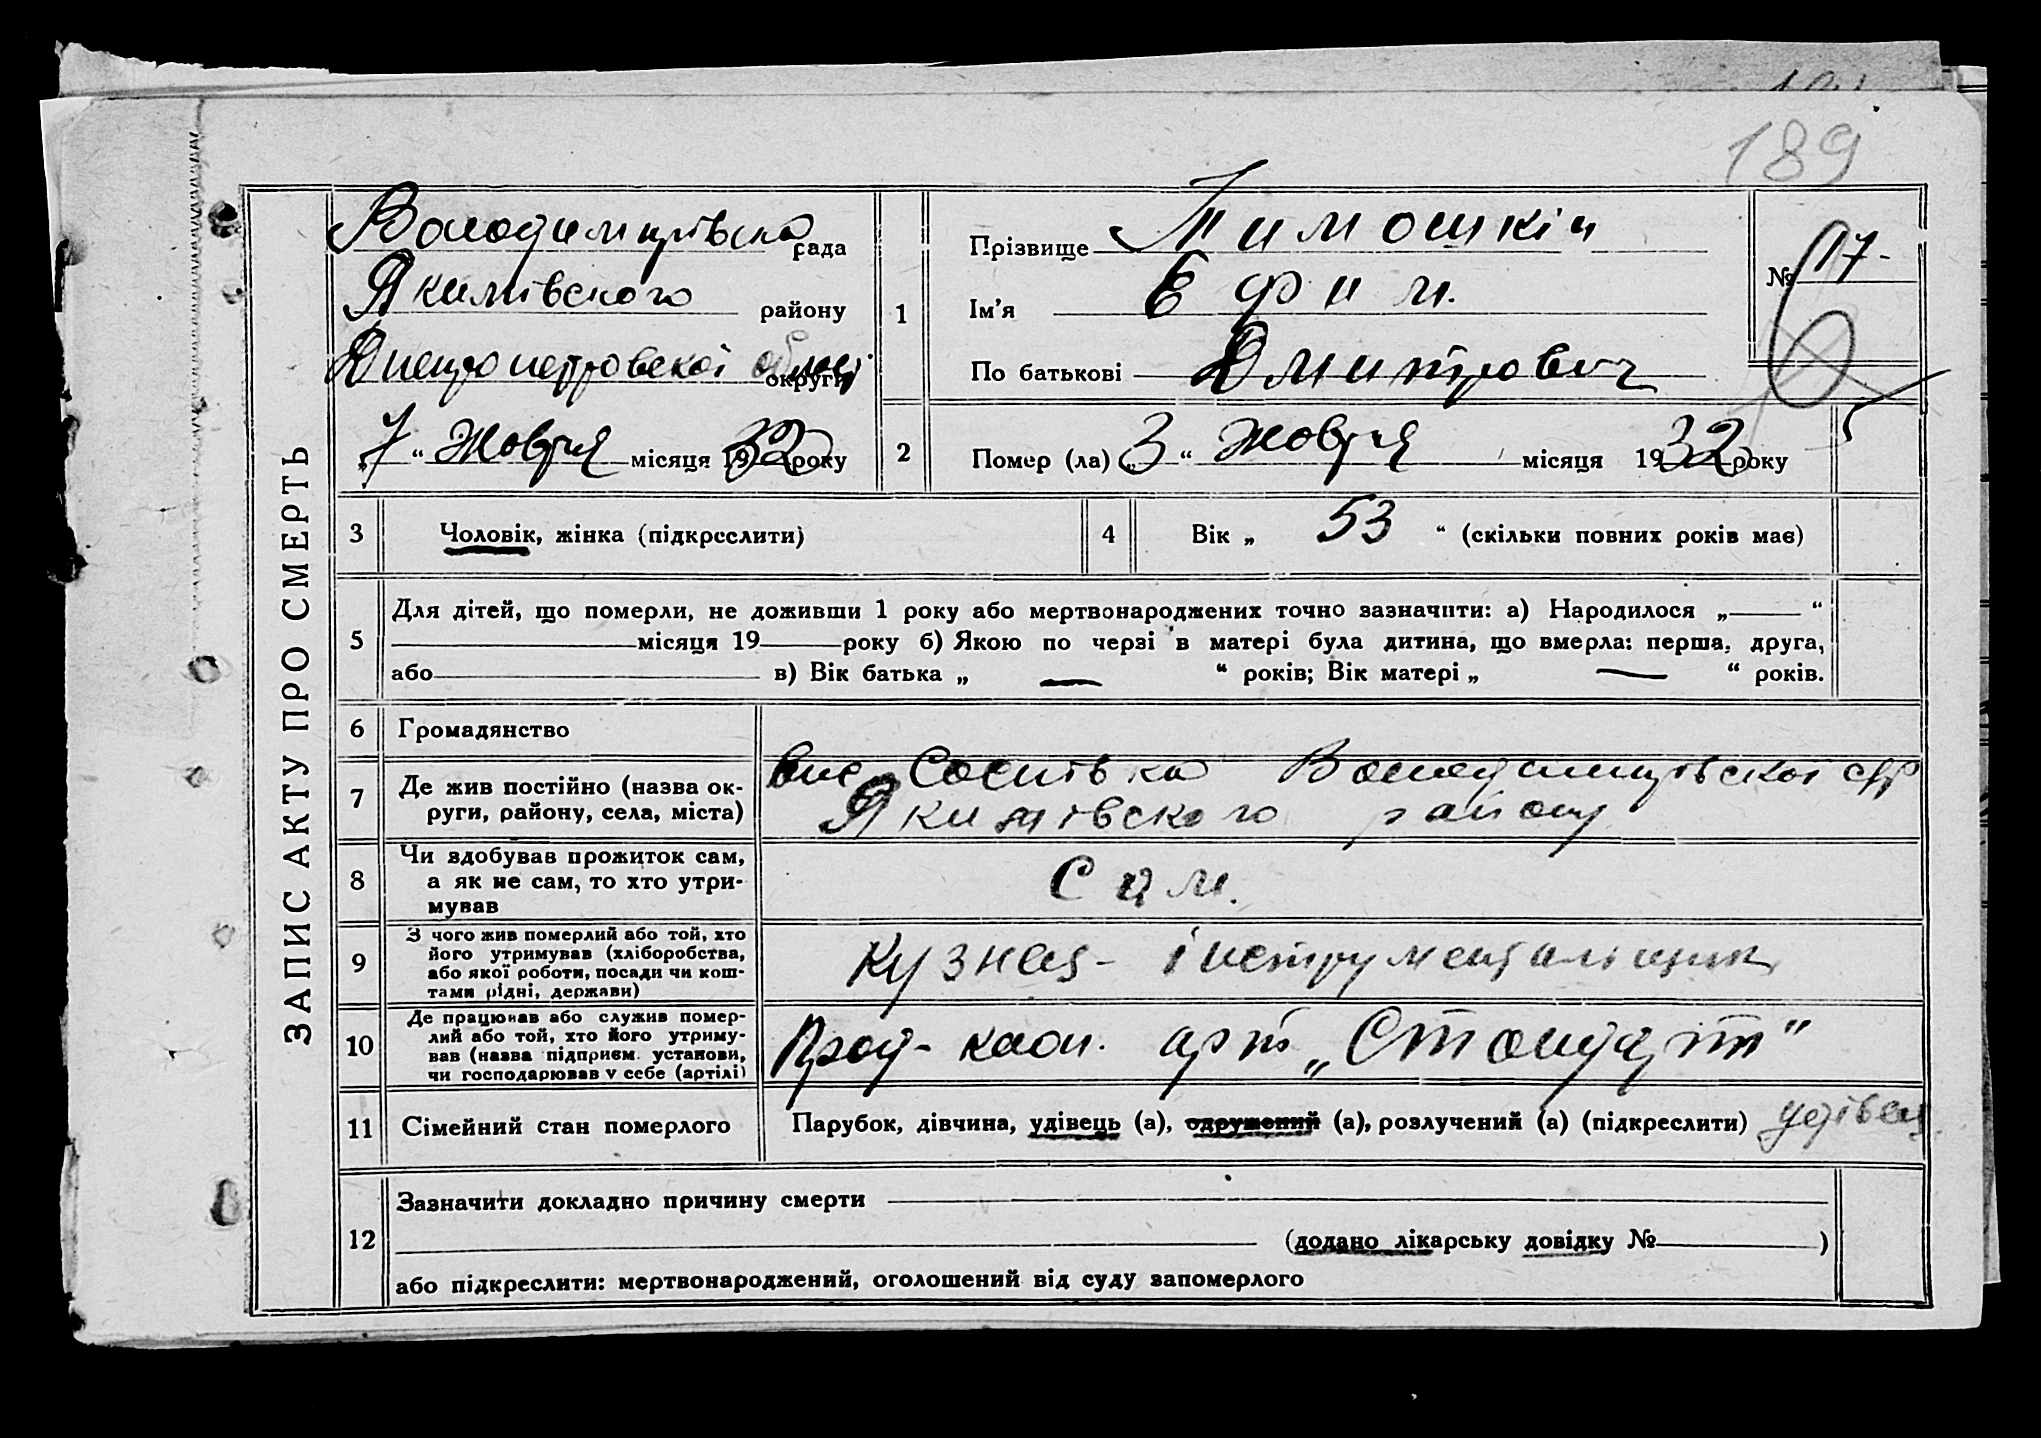 189
ЗАПИС АКТУ ПРО СМЕРТЬ
Володимирівська рада
Якимівського району
Днепропетровскої округи
„7“ Жовтня місяця 1932 року
1
Прізвище Тимошкін
Ім’я Ефим.
По батькові Дмитрович
№ 17-
2
Помер (ла) „3“ Жовтня місяця 1932 року
3
Чоловік, жінка (підкреслити)
4
Вік „ 53 “ (скільки повних років має)
5
Для дітей, що померли, не доживши 1 року або мертвонароджених точно зазначити: а) Народилося „ “
місяця 19 року б) Якою по черзі в матері була дитина, що вмерла: перша, друга,
або в) Вік батька „ — “ років; Вік матері „ — “ років.
6
Громадянство
7
Де жив постійно (назва ок-
руги, району, села, міста)
вис Володимирівської с/р
Якимівского району
8
Чи здобував прожиток сам,
а як не сам, то хто утри-
мував
Сам.
9
З чого жив померлий або той, хто
його утримував (хліборобства,
або якої роботи, посади чи кош-
тами рідні, держави)
Кузнец- інструментальщик
10
Де працював або служив помер-
лий або той, хто його утриму-
вав (назва підприєм. установи,
чи господарював у себе (артілі)
кооп. арт „Стандарт”
11
Сімейний стан померлого
Парубок, дівчина, удівець (а), одружений (а), розлучений (а) (підкреслити) удівець
12
Зазначити докладно причину смерти
(додано лікарську довідку № )
або підкреслити: мертвонароджений, оголошений від суду запомерлого